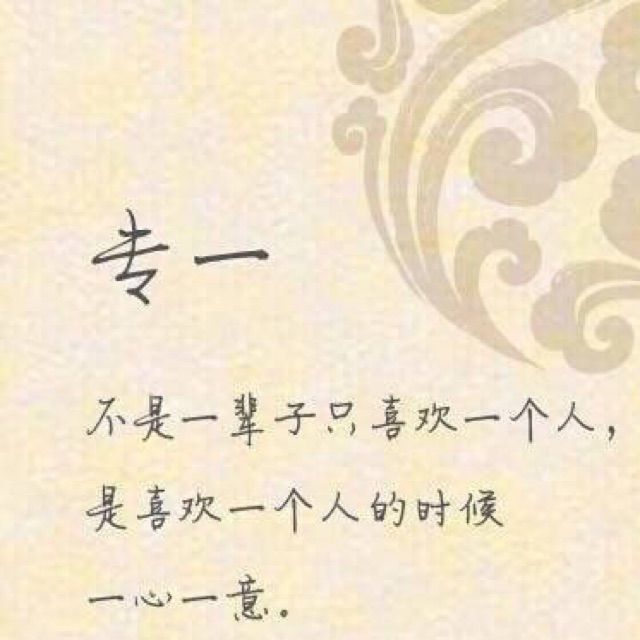 专一
不是一辈子只喜欢一个人，
是喜欢一个人的时候
一心一意。